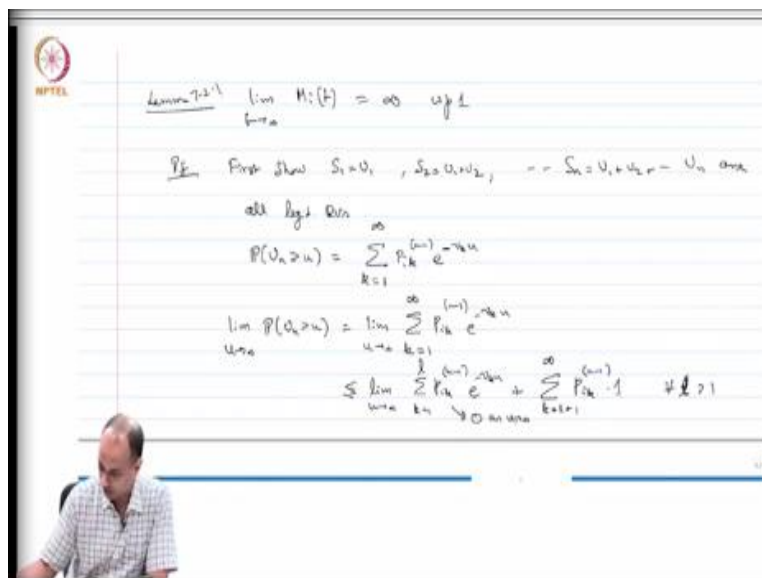 NPTEL
Lemma 7.2.1 lim M_i(t) = ∞ wp 1
t→∞
Pf First show S_1 = U_1 , S_2 = U_1+U_2, -- S_n = U_1+U_2+ - U_n are
all legt RVs
P(U_n ≥ u) = ∑_{k=1}^{∞} P_{ik}^{(n-1)} e^{-ν_k u}
lim_{u→∞} P(U_n ≥ u) = lim_{u→∞} ∑_{k=1}^{∞} P_{ik}^{(n-1)} e^{-ν_k u}
≤ lim_{u→∞} ∑_{k=1}^{l} P_{ik}^{(n-1)} e^{-ν_k u} + ∑_{k=l+1}^{∞} P_{ik}^{(n-1)} · 1 ∀ l ≥ 1
↘ 0 as u→∞